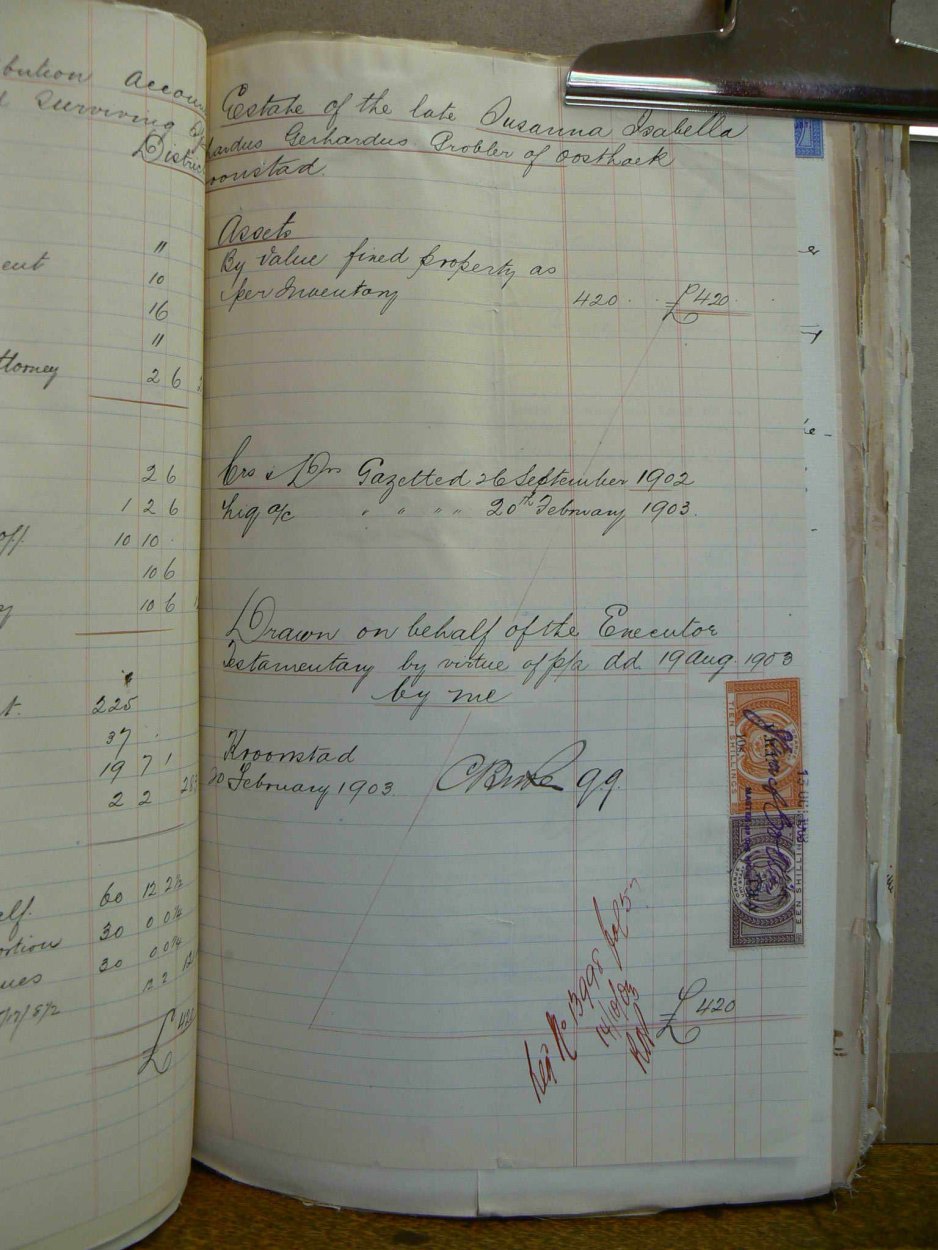 bution Accou
d Surviving
Distric
"
ent 10
16
"
ttorney 2 6
2 6
1 2 6
off 10 10
10 6
10 6
t. 225
37
19 7 1
2 2
elf. 60 12 2½
ortion 30 0 0¼
ues 30 0 0¼
£ 420
Estate of the late Susanna Isabella
hardus Gerhardus Grobler of Oosthoek
oonstad.
Assets
By Value fixed property as
per Inventory 420 £420
Crs & Drs Gazetted 26 September 1902
Liq a/c " " " " 20th February 1903.
Drawn on behalf of the Executor
Testamentary by virtue of p/a dd. 19 Aug. 1903
by me
Kroonstad
20 February 1903. qq.
TIEN SHILLINGS
EEN SHILLING
Reg No 13998
14/10/03
£ 420